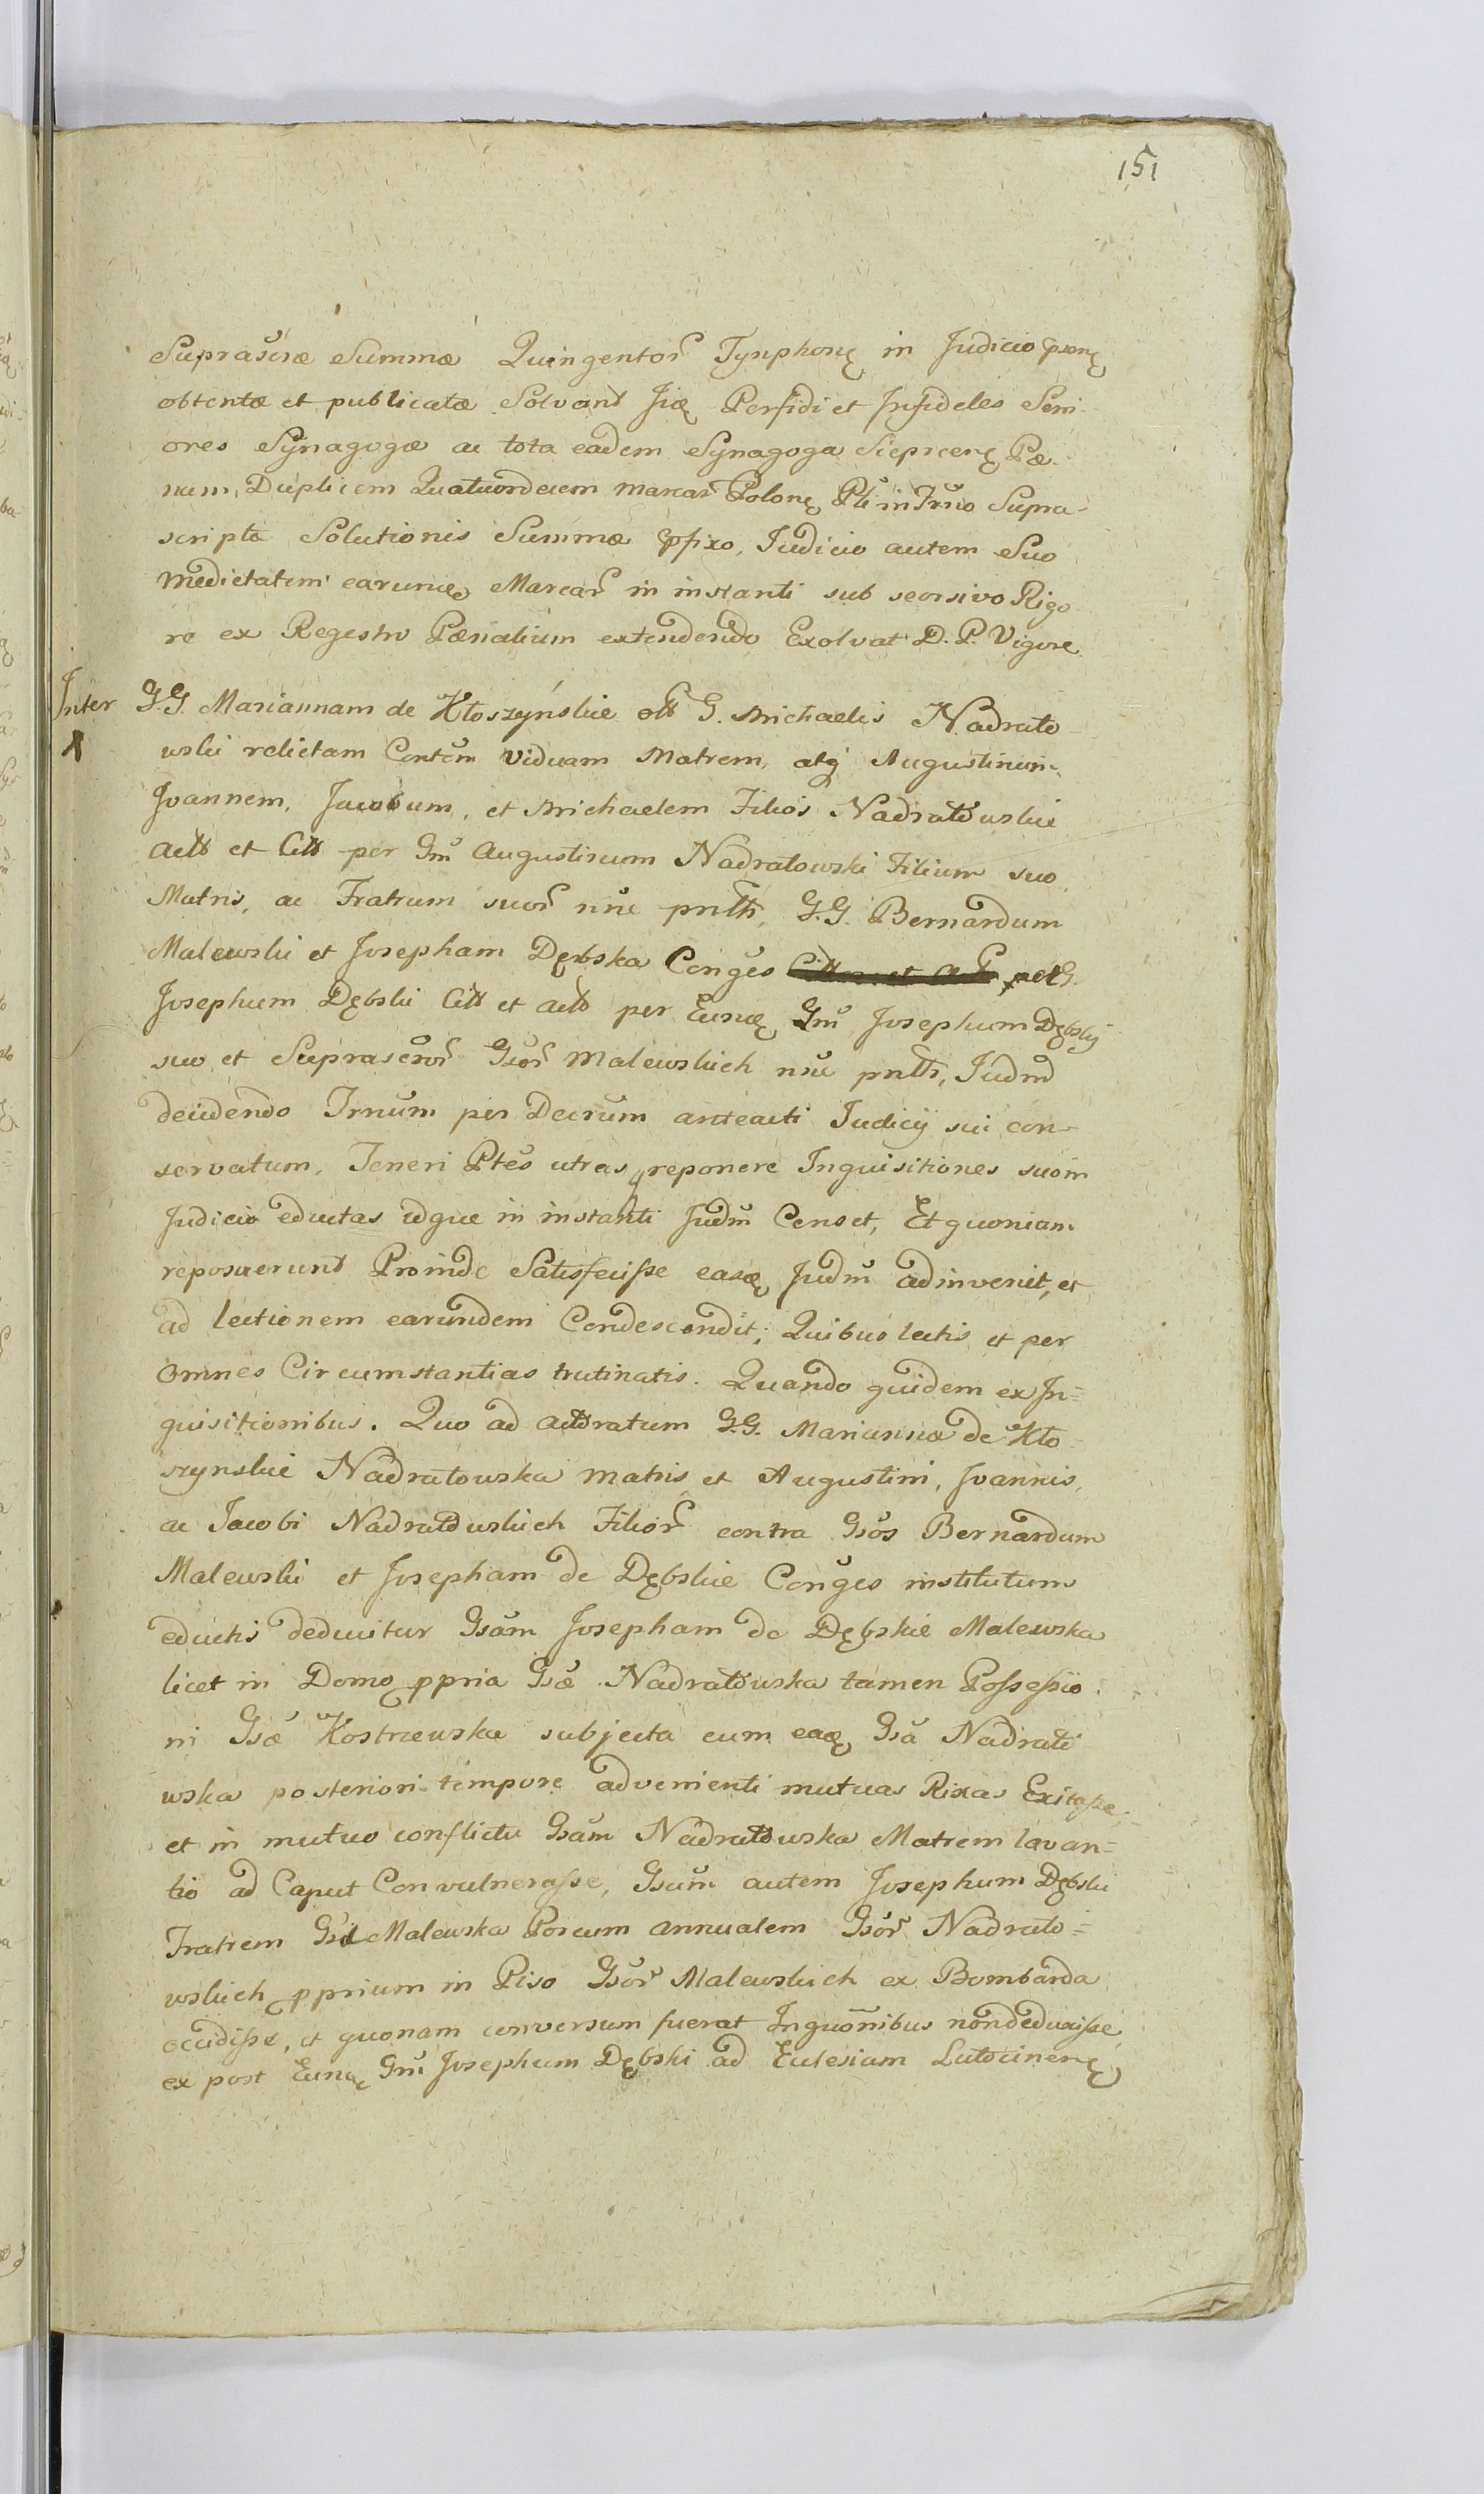 151
Suprascræ Summæ Quingentor Tynphonę in Judicio psenę
obtentæ et publicatæ Solvant Jię Perfidi et Infideles Seni-
ores Synagogæ ac tota eadem Synagoga Siepreenę Pæ-
nam Duplicem Quatuordecem marcar Polonę Pti in Trno Supra-
scriptæ Solutionis Summæ pfixo, Judicio autem Suo
medietatem earunię Marcar in instanti sub seorsivo Rigo-
re ex Regestro Pænalium extendendo Exolvat D. P. Vigore
Inter G.G. Mariannam de Kłoszyńskie olt G. Michaelis Nadrato-
X wski relictam Contem Viduam Matrem, atq Augustinum,
Joannem, Jacobum, et Michaelem Filios Nadratowskie
Actt et Citt per Gm Augustinum Nadratowski Filium suo
Matris, ac Fratrum suor nne pntt, G.G. Bernardum
Malewski et Josepham Dębska Conges Citt et Act act G.
Josephum Dębski Citt et Actt per Eunę Gm Josephum Dębskÿ
suo et Suprascror Gsor Malewskich nne pntt, Judm
decidendo Trnum per Decrum anteacti Judicÿ sui con-
servatum, Teneri Ptes utrasq reponere Inquisitiones suo in
Judicio eductas idque in instanti Judm Censet, Et quoniam
reposuerunt Proinde Satisfecisse easę Judm adinvenit, et
ad lectionem earundem Condescendit; Quibus lectis et per
omnes Circumstantias trutinatis. Quando quidem ex In=
quisitionibus. Quo ad Actoratum G.G. Mariannæ de Kło-
szynskie Nadratowska matris et Augustini, Joannis,
ac Jacobi Nadratowskich Filior contra Gsos Bernardum
Malewski et Josepham de Dębskie Conges institutum
eductis deducitur Gsam Josepham de Dębskie Malewska
licet in Domo ppria Gsæ Nadratowska tamen Possessio-
ni Gsæ Kostrzewska subjecta cum eaę Gsa Nadrato
wska posteriori tempore advenienti mutuas Rixas Exitasse
et in mutuo conflictu Gsam Nadratowska Matrem lavan=
tio ad Caput Convulnerasse, Gsum autem Josephum Dębski
Fratrem Gsæ Malewska Porcum annualem Gsor Nadrato=
wskich pprium in Piso Gsor Malewskich ex Bombarda
occidisse, et quonam conversum fuerat Inquonibus non deduxisse
ex post Eunę Gm Josephum Dębski ad Eclesiam Lutocinenę